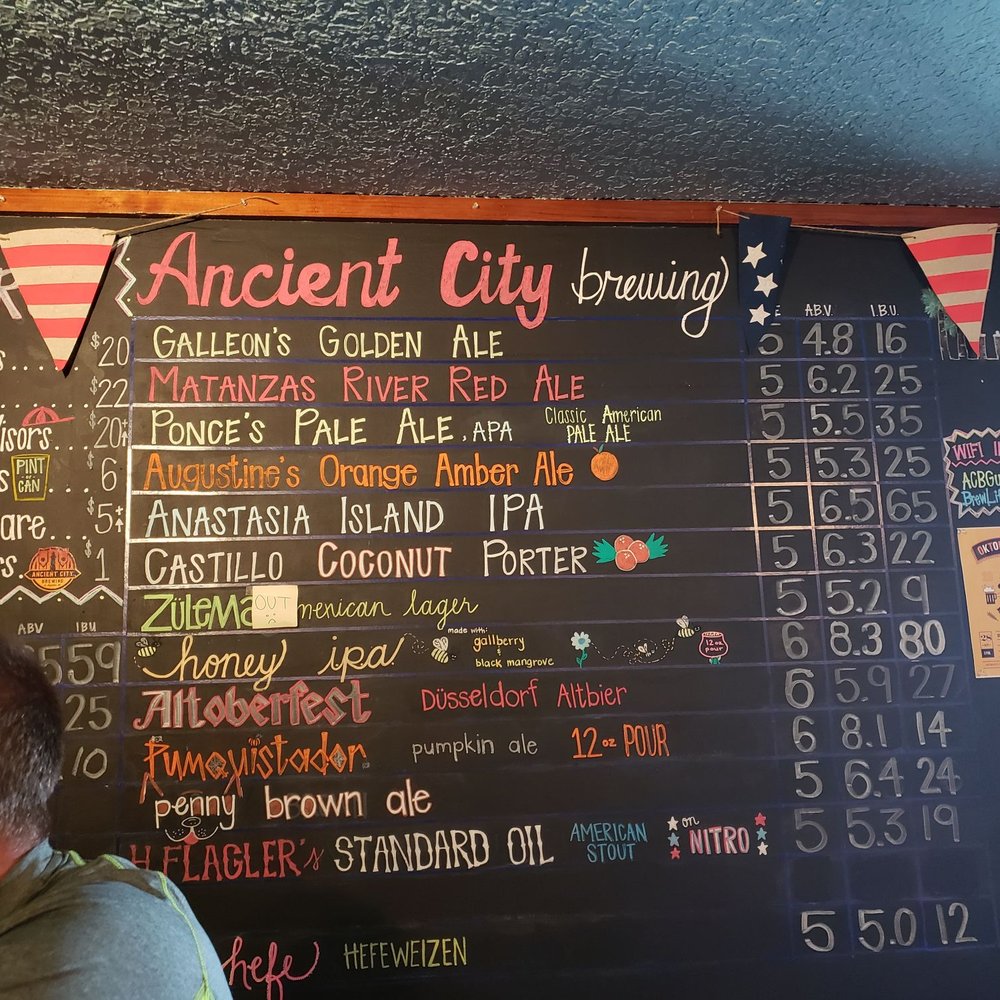 Ancient City brewing
ABV. I.B.U.
GALLEON'S GOLDEN ALE 5 4.8 16
MATANZAS RIVER RED ALE 5 6.2 25
PONCE'S PALE ALE, APA Classic American PALE ALE 5 5.5 35
Augustine's Orange Amber Ale 5 5.3 25
ANASTASIA ISLAND IPA 5 6.5 65
CASTILLO COCONUT PORTER 5 6.3 22
ZÜLEMA OUT mexican lager 5 5.2 9
honey ipa made with: gallberry & black mangrove 12 oz pour 6 8.3 80
Altoberfest Düsseldorf Altbier 6 5.9 27
Pumquistador pumpkin ale 12 oz POUR 6 8.1 14
penny brown ale 5 6.4 24
H. FLAGLER's STANDARD OIL AMERICAN STOUT on NITRO 5 5.3 19
hefe HEFEWEIZEN 5 5.0 12
$20
$22
visors... $20
PINT CAN ... 6
are... $5
s. ANCIENT CITY BREWING $1
ABV IBU
5 59
25
10
WIFI
BrewLi
OKTO